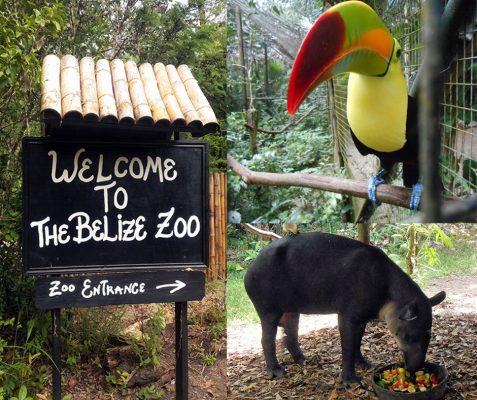 WELCOME
TO
THE BELIZE ZOO
ZOO ENTRANCE →